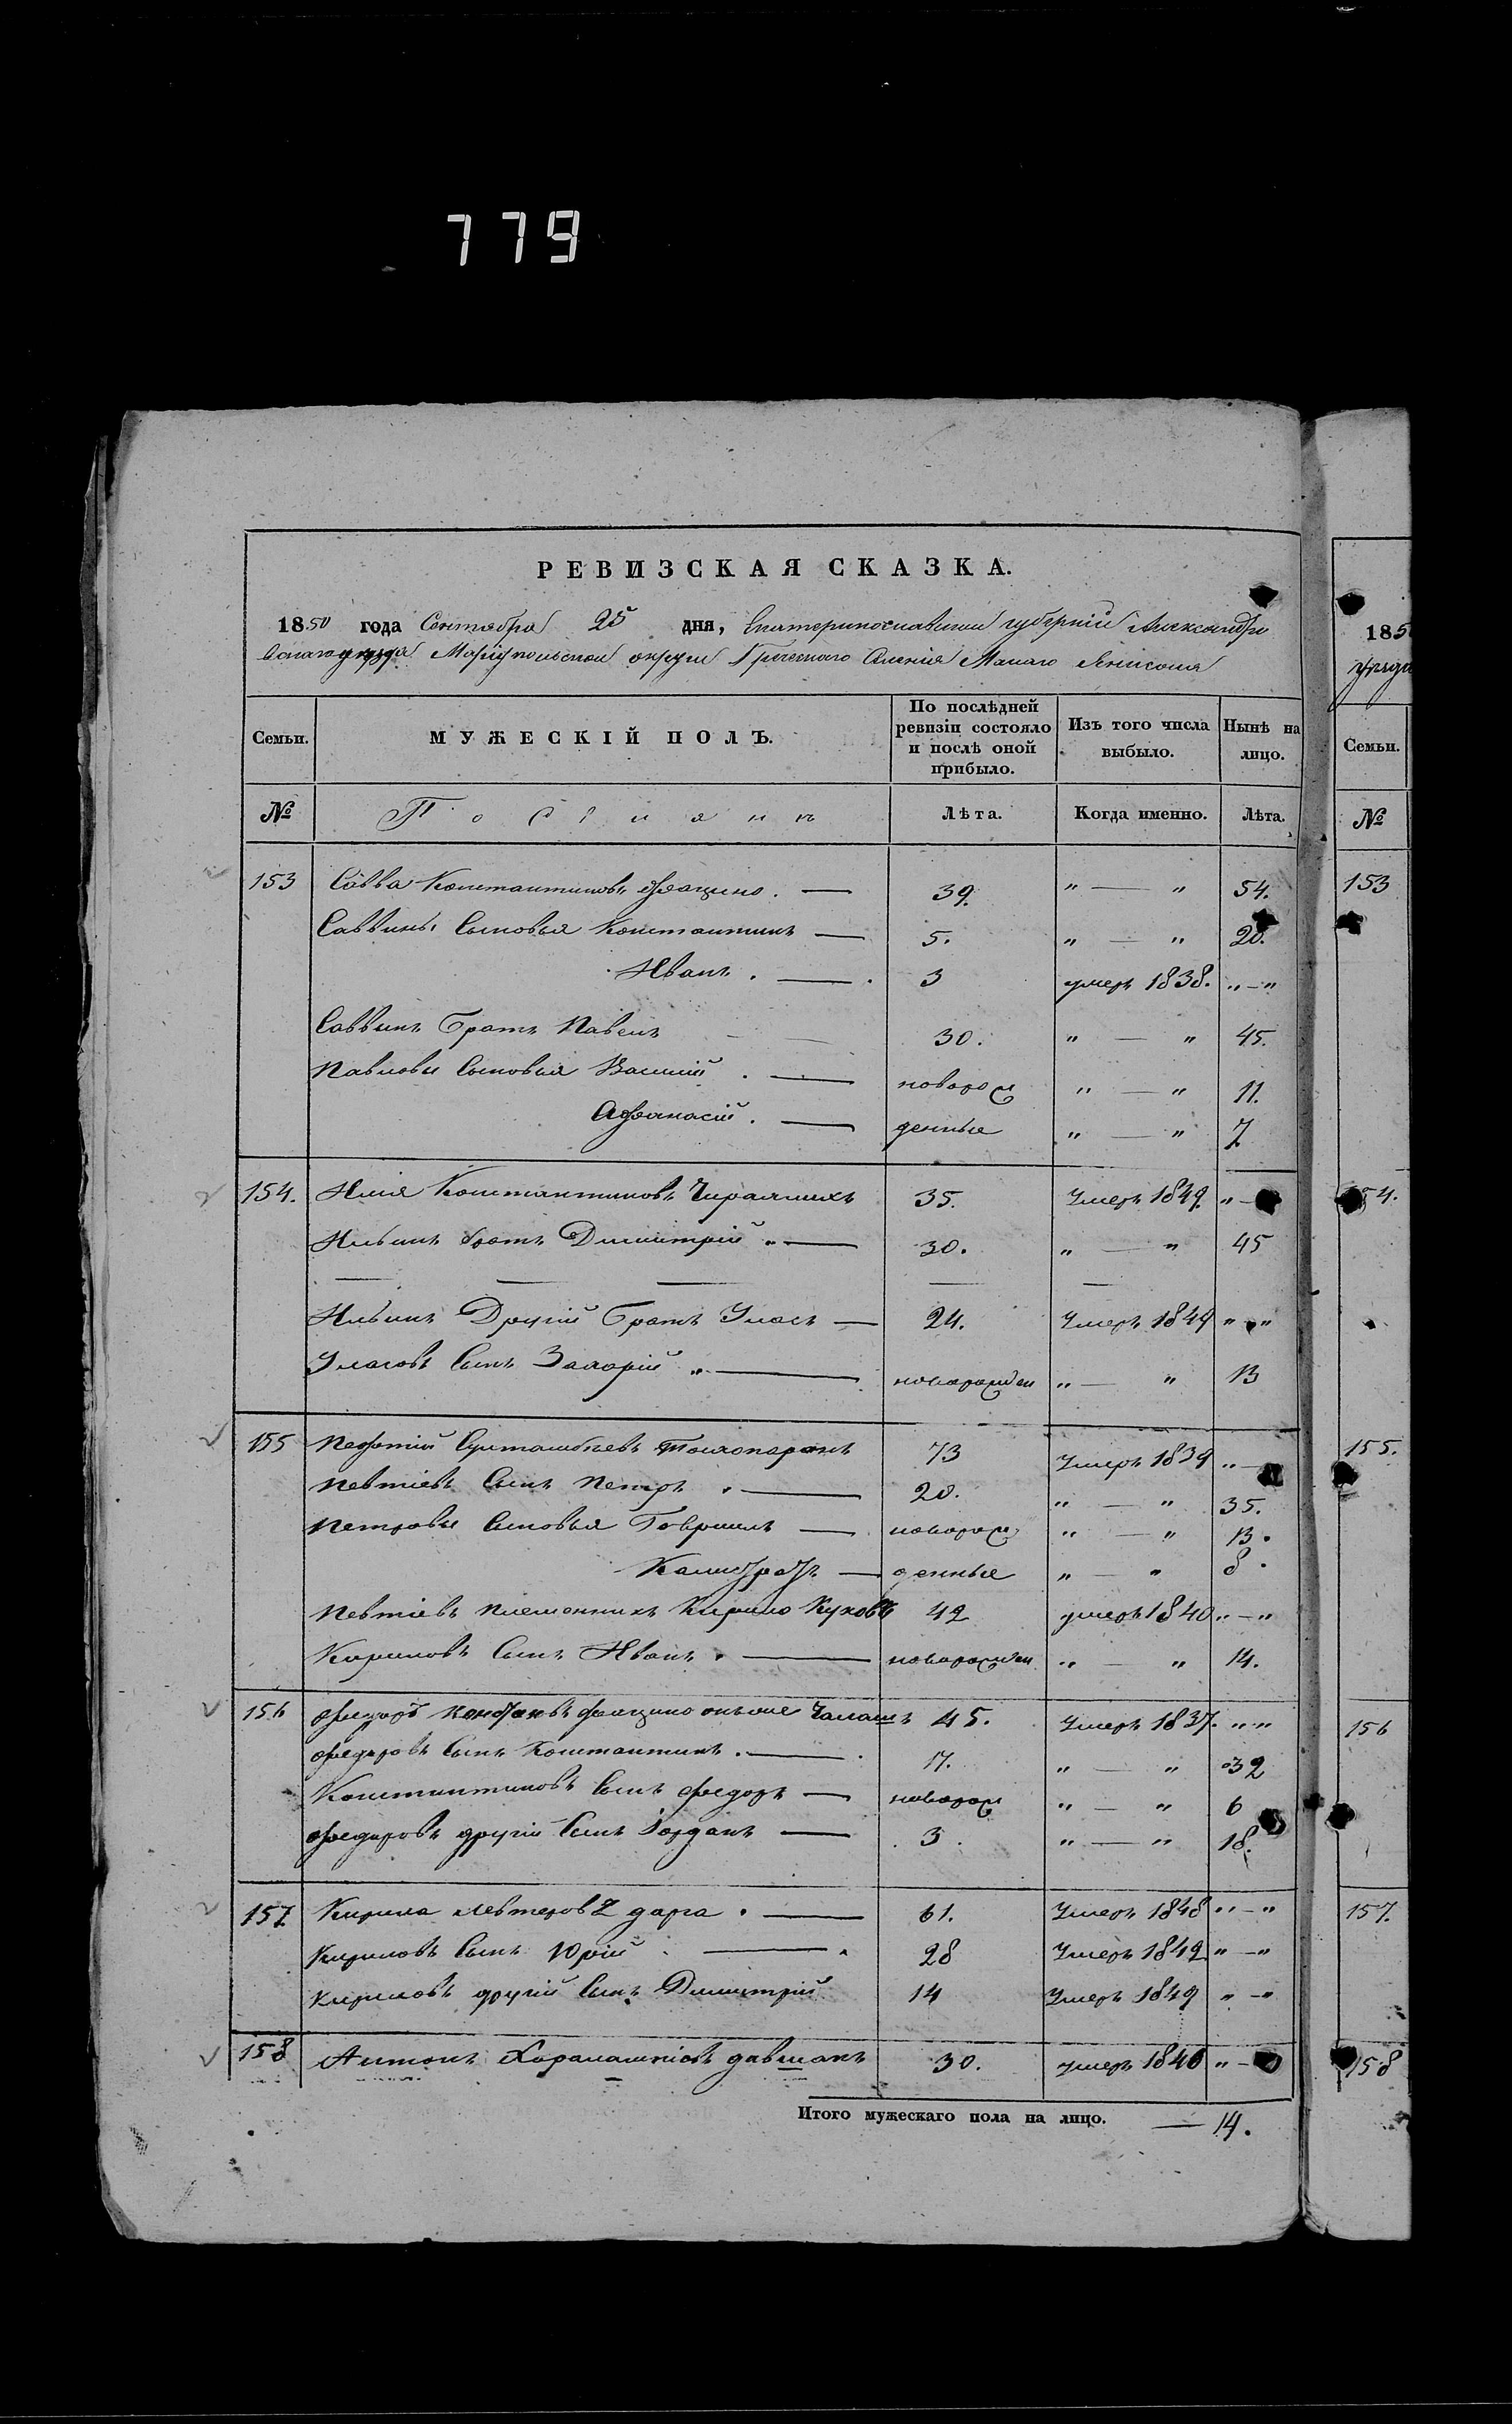 779
РЕВИЗСКАЯ СКАЗКА.
1850 года Сентября 25 дня, Екатеринославской губерніи Александро
вскаго уезда Маріупольской округи Греческаго Селенія Малаго Янисоля
Семьи. МУЖЕСКІЙ ПОЛЪ. По послѣдней ревизіи состояло и послѣ оной прибыло. Изъ того числа выбыло. Нынѣ на лицо.
№ Поселянъ Лѣта. Когда именно. Лѣта.
153 Савва Константиновъ Фращино. — 39. " — " 54.
Саввины Сыновья Константинъ — 5. " — " 20.
Иванъ. — 3 умеръ 1838. " — "
Саввинъ Братъ Павелъ 30. " — " 45.
Павловы Сыновья Василій . — новорож " — " 11.
Афанасій . — денные " — " 7
154. Илія Константиновъ Чираллихъ 35. Умеръ 1849. " —
Ильинъ братъ Димитрій " — 30. " — " 45
Ильинъ Другій Братъ Уласъ — 24. Умеръ 1849 " — "
Уласовъ Сынъ Захарій " — новорожден " — " 13
155 73 Умеръ 1839 " —
Певтіевъ Сынъ Петръ . — 20. " — " 35.
Петровы Сыновья Гавриилъ — новорож " — " 13.
Калистратъ — денные " — " 8.
Певтіевъ племенникъ Кирило Куховъ 42 умеръ 1840 " — "
Кириловъ Сынъ Иванъ . — новорожден " — " 14.
156 Федоръ Фращино онъ же Чалашъ 45. Умеръ 1837. " "
Федоровъ Сынъ Константинъ . — 17. " — " 32
Константиновъ Сынъ Федоръ — новорож " — " 6
Федоровъ другій Сынъ Іорданъ — 3. " — " 18.
157 Кирила Левтеровъ дарга . — 61. Умеръ 1848 " — "
Кириловъ Сынъ Юрій . — 28 Умеръ 1842 " — "
Кириловъ другій Сынъ Димитрій 14 Умеръ 1849 " — "
158 Антонъ Харалампіевъ давшанъ 30. умеръ 1846 " —
Итого мужескаго пола на лицо. — 14.
185
Семьи.
№
153
54.
155.
156
157.
158